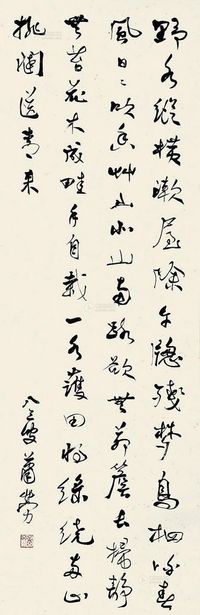 野水縱橫漱屋除午牕殘夢鳥相呼春
風日〻吹香艸山北山南路欲無茅簷長掃靜
無苔花木成畦手自栽一水護田將綠繞兩山
排闥送青來
八三叟蕭勞